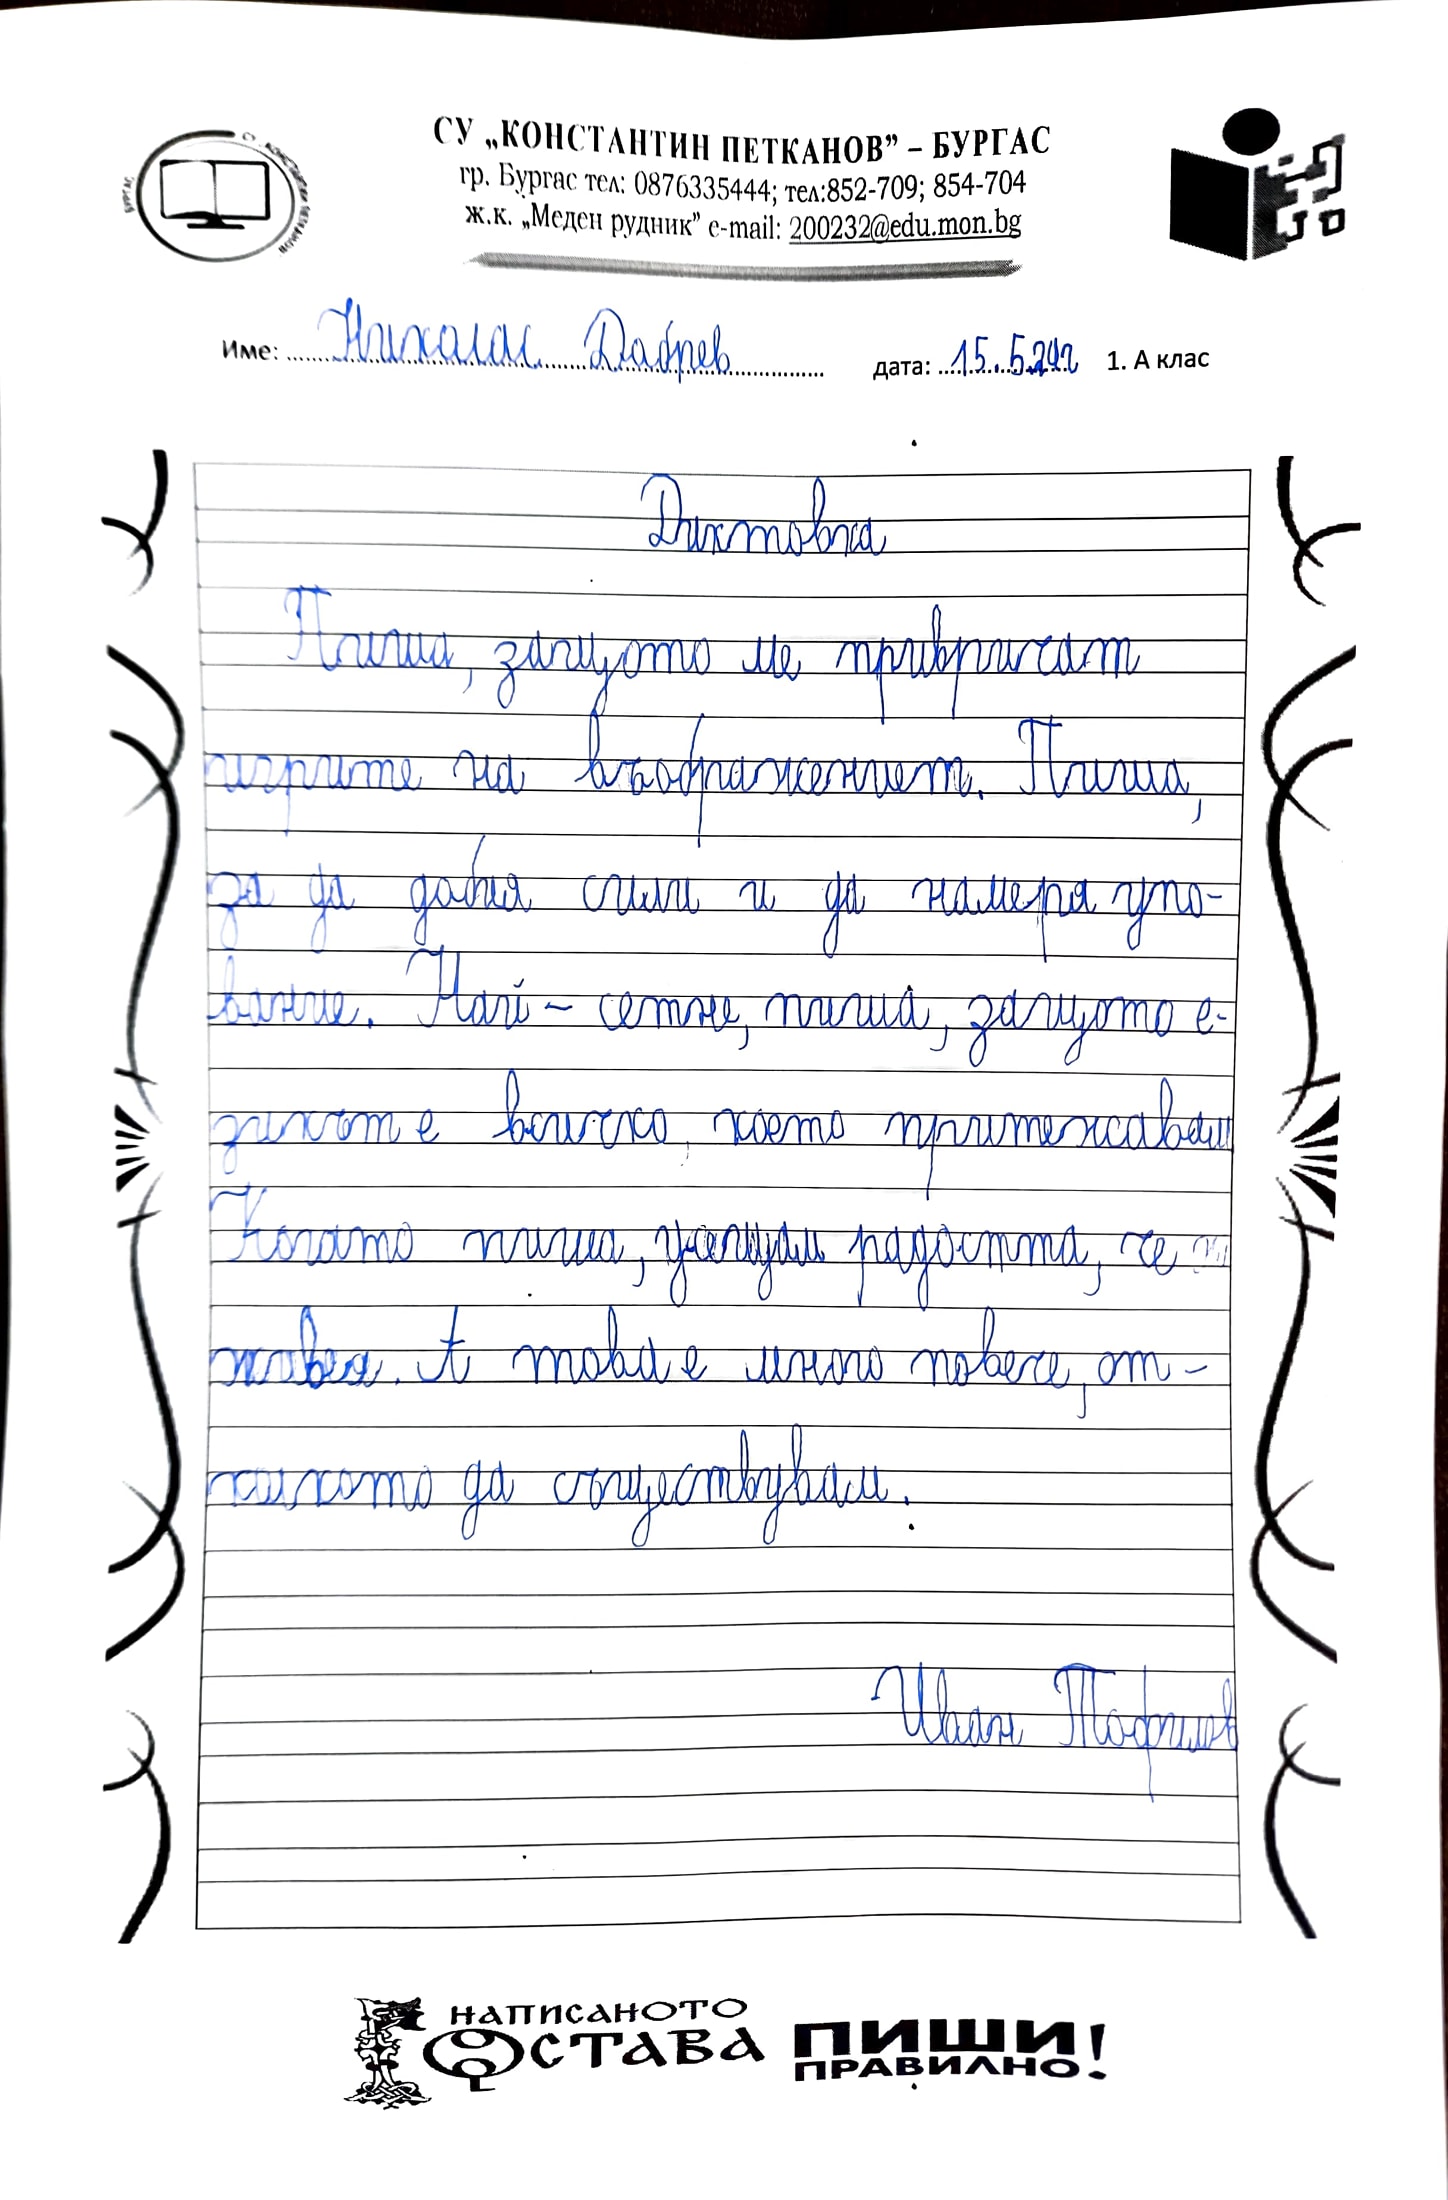 СУ „КОНСТАНТИН ПЕТКАНОВ” – БУРГАС
гр. Бургас тел: 0876335444; тел:852-709; 854-704
ж.к. „Меден рудник” e-mail: 200232@edu.mon.bg
Име: Николас Дабрев дата: 15.5.24г 1. А клас
Диктовка
Пиша, защото ме привличат
игрите на въображението. Пиша,
за да добия сили и да намеря упо-
вание. Най - сетне, пиша, защото е-
зикът е всичко, което притежавам
Когато пиша, усещам радостта, че
живея. А това е много повече, от-
колкото да съществувам.
Иван Тофилов
НАПИСАНОТО
ОСТАВА ПИШИ
ПРАВИЛНО!